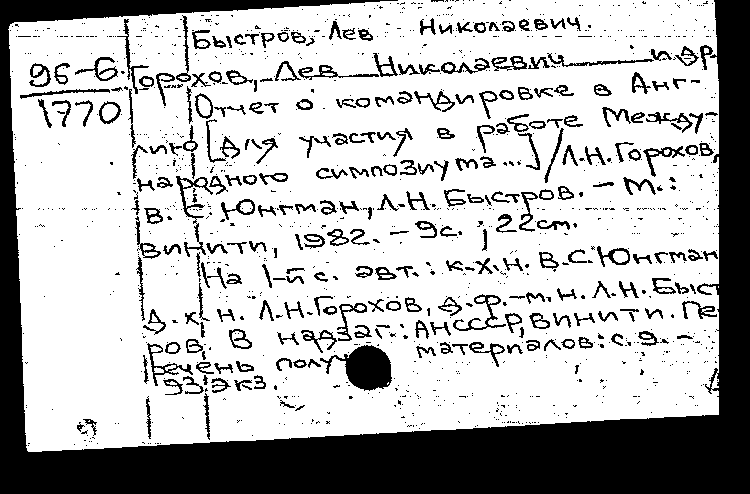 Быстров, Лев Николаевич.
96-6
1770
Горохов, Лев Николаевич и др
Отчет о командировке в Анг-
лию [для участия в работе Между-
народного симпозиума...] / Л.Н. Горохов,
В. С. Юнгман, Л.Н. Быстров. - М.:
ВИНИТИ, 1982. - 9с. ; 22см.
На 1-й с. авт.: к.х.н. В.С. Юнгман
д.х.н. Л.Н. Горохов, д.ф.-м.н. Л.Н. Быст
ров. В надзаг.: АН СССР, ВИНИТИ. Пе
речень получ материалов: с. 9. -
93 экз.